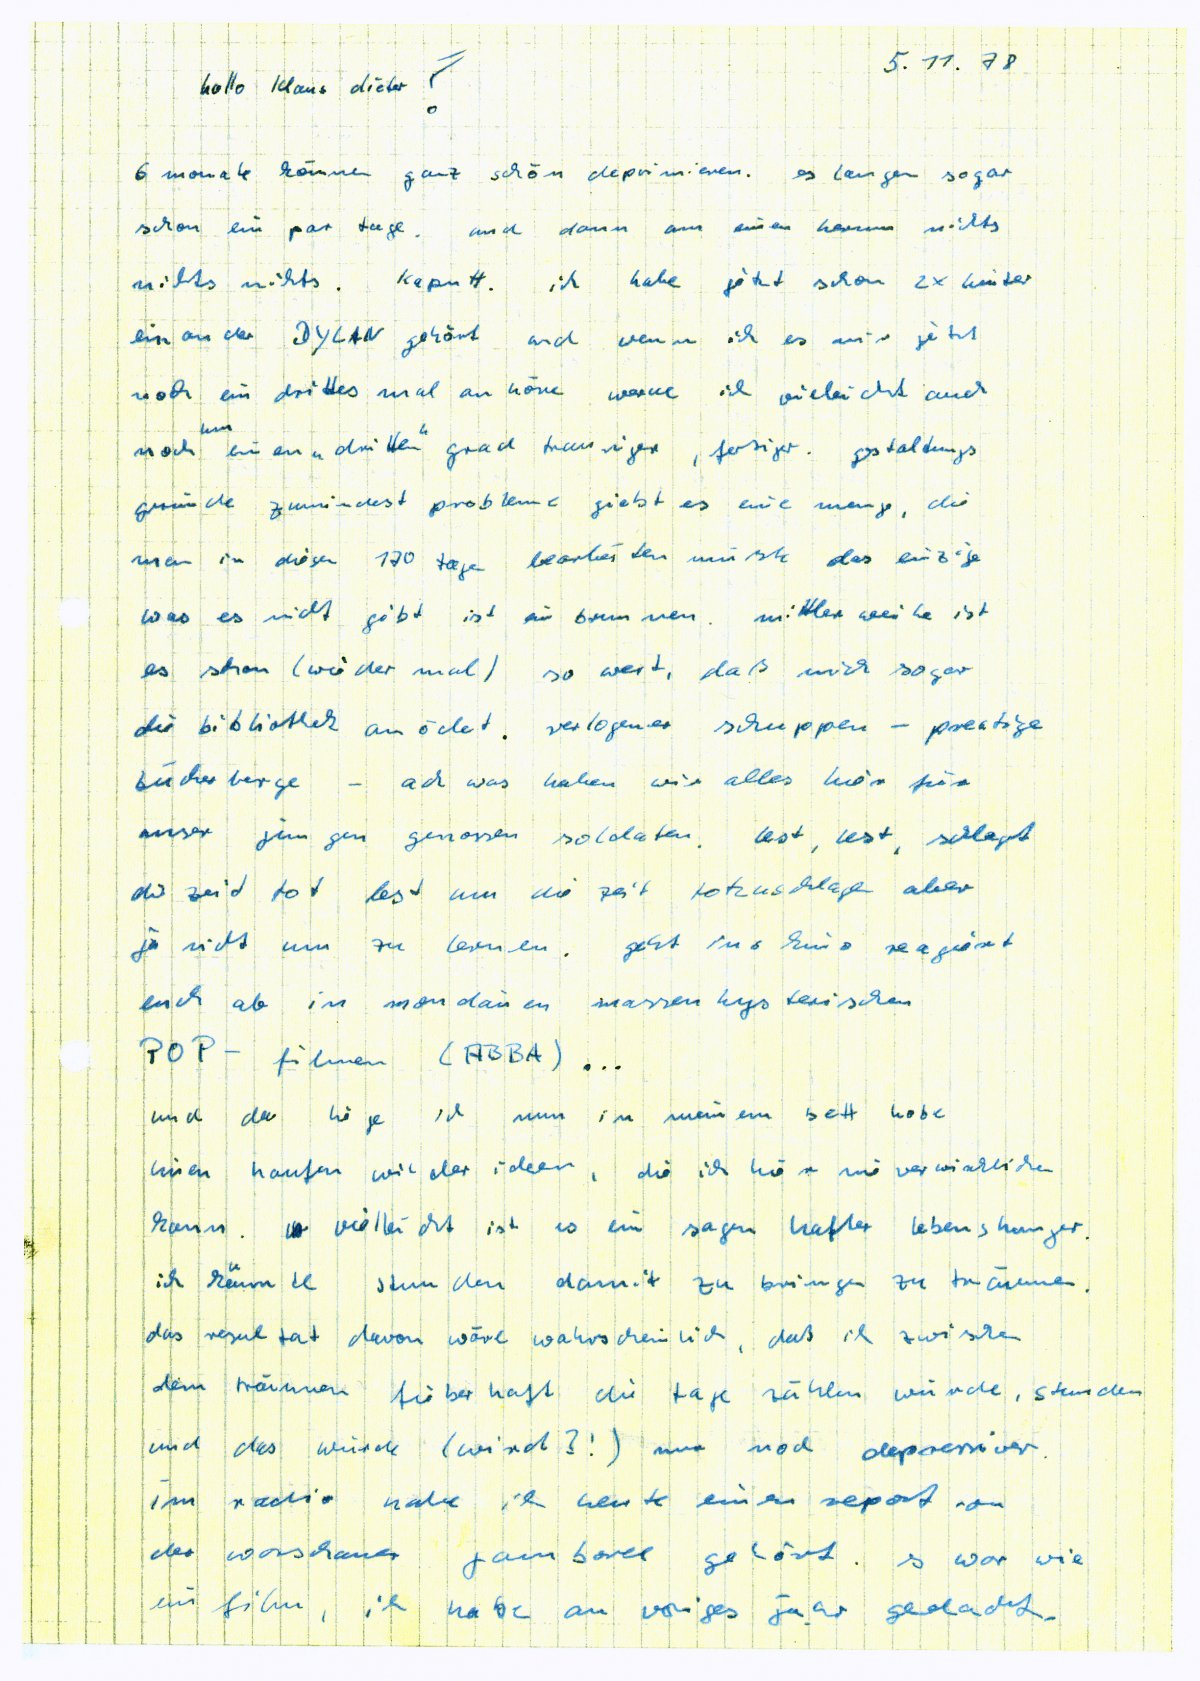 5. 11. 78
hallo Klaus dieter!
6 monate können ganz schön deprimieren. es langen sogar
schon ein par tage. und dann um einen herum nichts
nichts nichts. kaputt. ich habe jetzt schon 2x hinter
einander DYLAN gehört und wenn ich es mir jetzt
noch ein drittes mal anhöre werde ich vieleicht auch
noch um einen "dritten" grad trauriger, fertiger. gestaltungs
gründe zumindest probleme giebt es eine menge, die
man in diesen 170 tagen bearbeiten müsste das einzige
was es nicht gibt ist ein brunnen. mittlerweile ist
es schon (wieder mal) so weit, daß mich sogar
die bibliothek anödet. verlogener schuppen –
bücherberge – ach was haben wir alles hier für
unser jungen genossen soldaten. lest, lest, schlagt
die zeit tot lest um die zeit totzuschlagen aber
ja nicht um zu lernen. geht ins kino reagiert
euch ab in mondänen massenhysterischen
POP – filmen (ABBA) ...
und da liege ich nun in meinem bett habe
einen haufen wilder ideen, die ich hier nie verwirklichen
kann. vielleicht ist es ein sagenhafter lebenshunger.
ich könnte stunden damit zu bringen zu träumen.
das resultat davon wäre wahrscheinlich, daß ich zwischen
dem träumen fieberhaft die tage zählen würde, stunden
und das würde (wird?!) nur noch depressiver.
im radio habe ich heute einen report von
der warschauer jamboree gehört. es war wie
ein film, ich habe an voriges jahr gedacht.